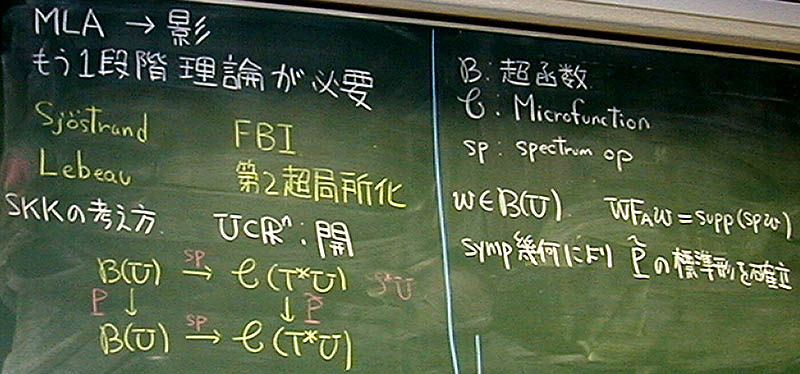 MLA → 影
もう1段階 理論が必要
Sjöstrand FBI
Lebeau 第2超局所化
SKKの考え方 U⊂ℝⁿ: 開
B(U) sp→ C(T*U) S*U
P ↓ ↓ P̃
B(U) sp→ C(T*U)
B: 超函数
C: Microfunction
sp: spectrum op
w∈B(U) WF_A w = supp(sp w)
symp幾何により P̃の標準形を確立